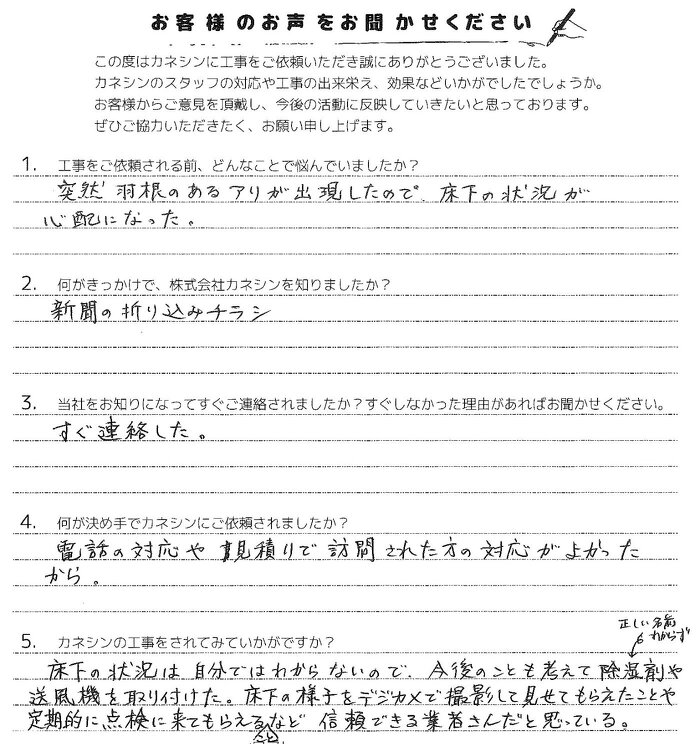 お客様のお声をお聞かせください
この度はカネシンに工事をご依頼いただき誠にありがとうございました。
カネシンのスタッフの対応や工事の出来栄え、効果などいかがでしたでしょうか。
お客様からご意見を頂戴し、今後の活動に反映していきたいと思っております。
ぜひご協力いただきたく、お願い申し上げます。
1. 工事をご依頼される前、どんなことで悩んでいましたか？
突然羽根のあるアリが出現したので、床下の状況が
心配になった。
2. 何がきっかけで、株式会社カネシンを知りましたか？
新聞の折り込みチラシ
3. 当社をお知りになってすぐご連絡されましたか？すぐしなかった理由があればお聞かせください。
すぐ連絡した。
4. 何が決め手でカネシンにご依頼されましたか？
電話の対応や見積りで訪問された方の対応がよかった
から。
5. カネシンの工事をされてみていかがですか？
正しい名前
わからず
床下の状況は自分ではわからないので、今後のことも考えて除湿剤や
送風機を取り付けた。床下の様子をデジカメで撮影して見せてもらえたことや
定期的に点検に来てもらえるなど信頼できる業者さんだと思っている。